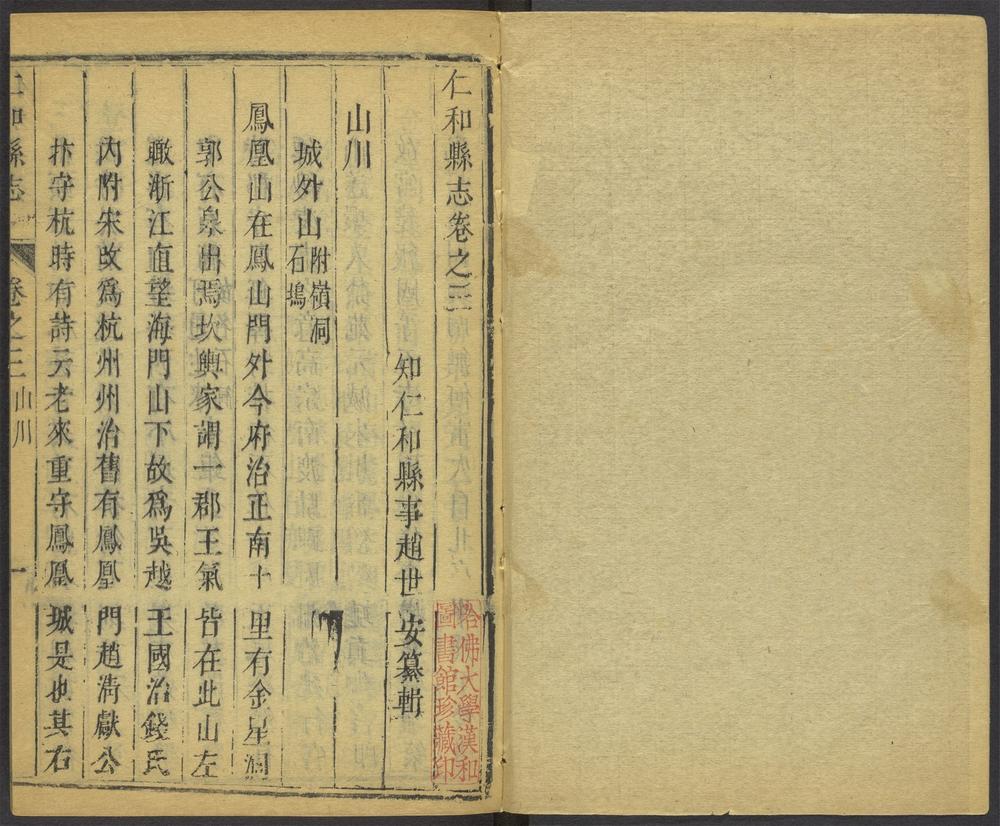 仁和縣志卷之三
知仁和縣事趙世安纂輯
山川
城外山附嶺洞石塢
鳳凰山在鳳山門外今府治正南十里有金星洞
郭公泉出焉坎輿家謂一郡王氣皆在此山左
瞰浙江直望海門山下故爲吳越王國治錢氏
內附宋改爲杭州州治舊有鳳凰門趙淸獻公
抃守杭時有詩云老來重守鳳凰城是也其右
仁和縣志 卷之三 山川 一
哈佛大學漢和圖書館珍藏印